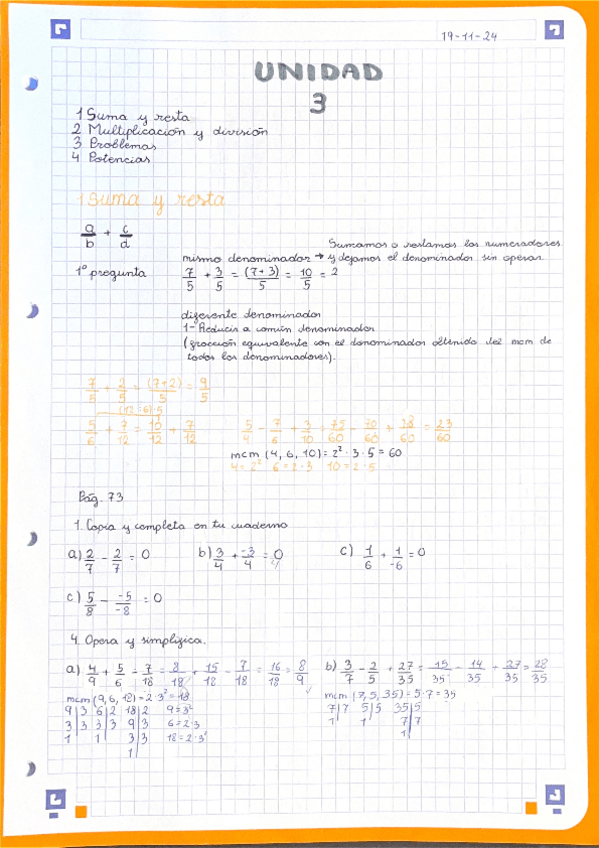 19-11-24
UNIDAD
3
1 Suma y resta
2 Multiplicación y división
3 Problemas
4 Potencias
1 Suma y resta
a/b + c/d
Sumamos o restamos los numeradores
mismo denominador → y dejamos el denominador sin operar.
1º pregunta 7/5 + 3/5 = (7+3)/5 = 10/5 = 2
diferente denominador
1- Reducir a común denominador
(fracción equivalente con el denominador obtenido del mcm de
todos los denominadores).
7/5 + 2/5 = (7+2)/5 = 9/5
(12:6)·5
5/6 + 7/12 = 10/12 + 7/12
5/4 - 7/6 + 3/10 = 75/60 - 70/60 + 18/60 = 23/60
mcm (4, 6, 10) = 2² · 3 · 5 = 60
4 = 2² 6 = 2·3 10 = 2·5
Pág. 73
1. Copia y completa en tu cuaderno
a) 2/7 - 2/7 = 0 b) 3/4 + -3/4 = 0 c) 1/6 + 1/-6 = 0
c) 5/8 - -5/-8 = 0
4. Opera y simplifica.
a) 4/9 + 5/6 - 7/18 = 8/18 + 15/18 - 7/18 = 16/18 = 8/9
b) 3/7 - 2/5 + 27/35 = 15/35 - 14/35 + 27/35 = 28/35
mcm (9, 6, 18) = 2·3² = 18
9|3 6|2 18|2 9=3²
3|3 3|3 9|3 6=2·3
1 1 3|3 18=2·3²
1
mcm (7, 5, 35) = 5·7 = 35
7|7 5|5 35|5
1 1 7|7
1